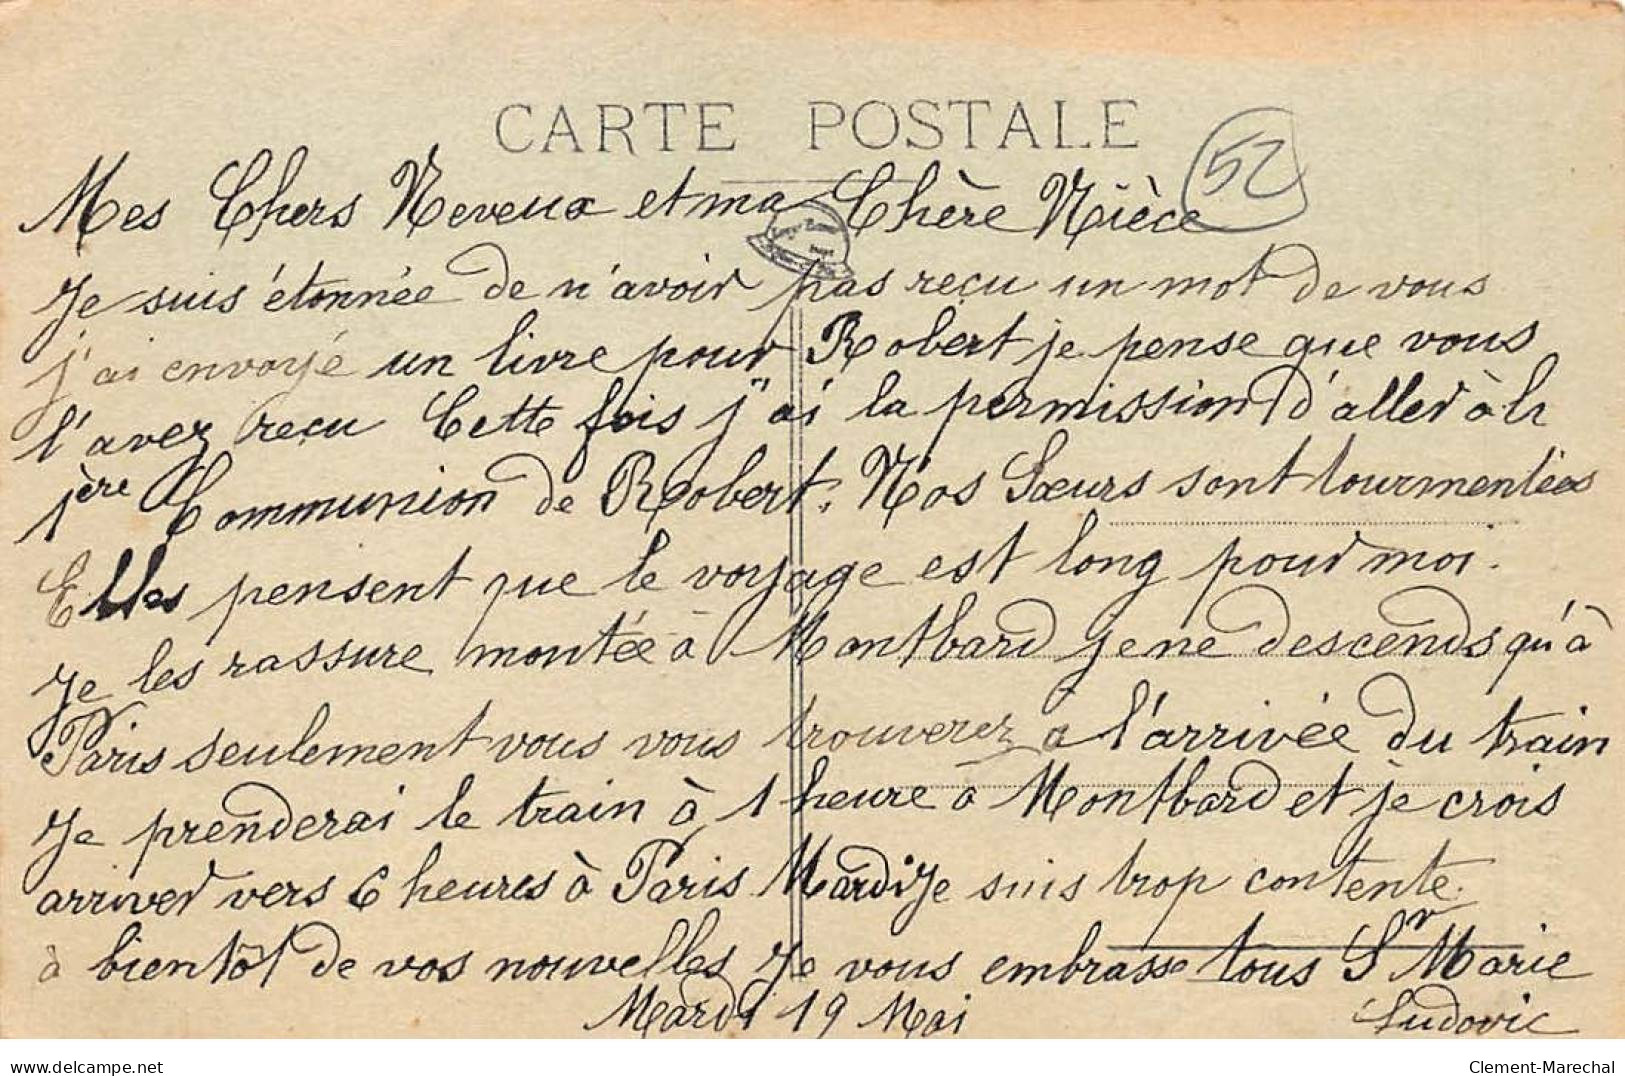 CARTE POSTALE
52
Mes Chers Neveux et ma Chère Nièce
Je suis étonnée de n'avoir pas reçu un mot de vous
j'ai envoyé un livre pour Robert je pense que vous
l'avez reçu Cette fois j'ai la permission d'aller à la
1ère Communion de Robert. Nos Sœurs sont tourmentées
Elles pensent que le voyage est long pour moi.
Je les rassure montée à Montbard je ne descends qu'à
Paris seulement vous vous trouverez a l'arrivée du train
Je prenderai le train à 1 heure à Montbard et je crois
arriver vers 6 heures à Paris Mardi Je suis trop contente.
à bientôt de vos nouvelles Je vous embrasse tous Sr Marie
Mardi 19 Mai Ludovic
delcampe.net
Clement-Marechal